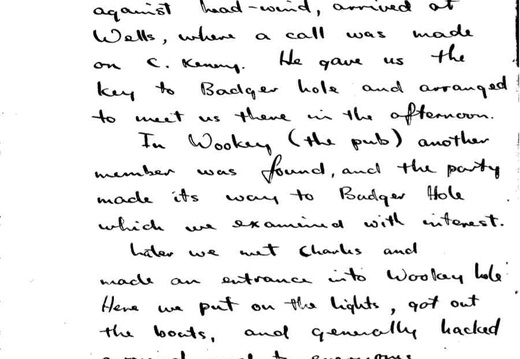 against head-wind, arrived at
Wells, where a call was made
on C. Kenny. He gave us the
key to Badger hole and arranged
to meet us there in the afternoon.
In Wookey (the pub) another
member was found, and the party
made its way to Badger Hole
which we examined with interest.
Later we met Charles and
made an entrance into Wookey hole
Here we put on the lights, got out
the boats, and generally hacked